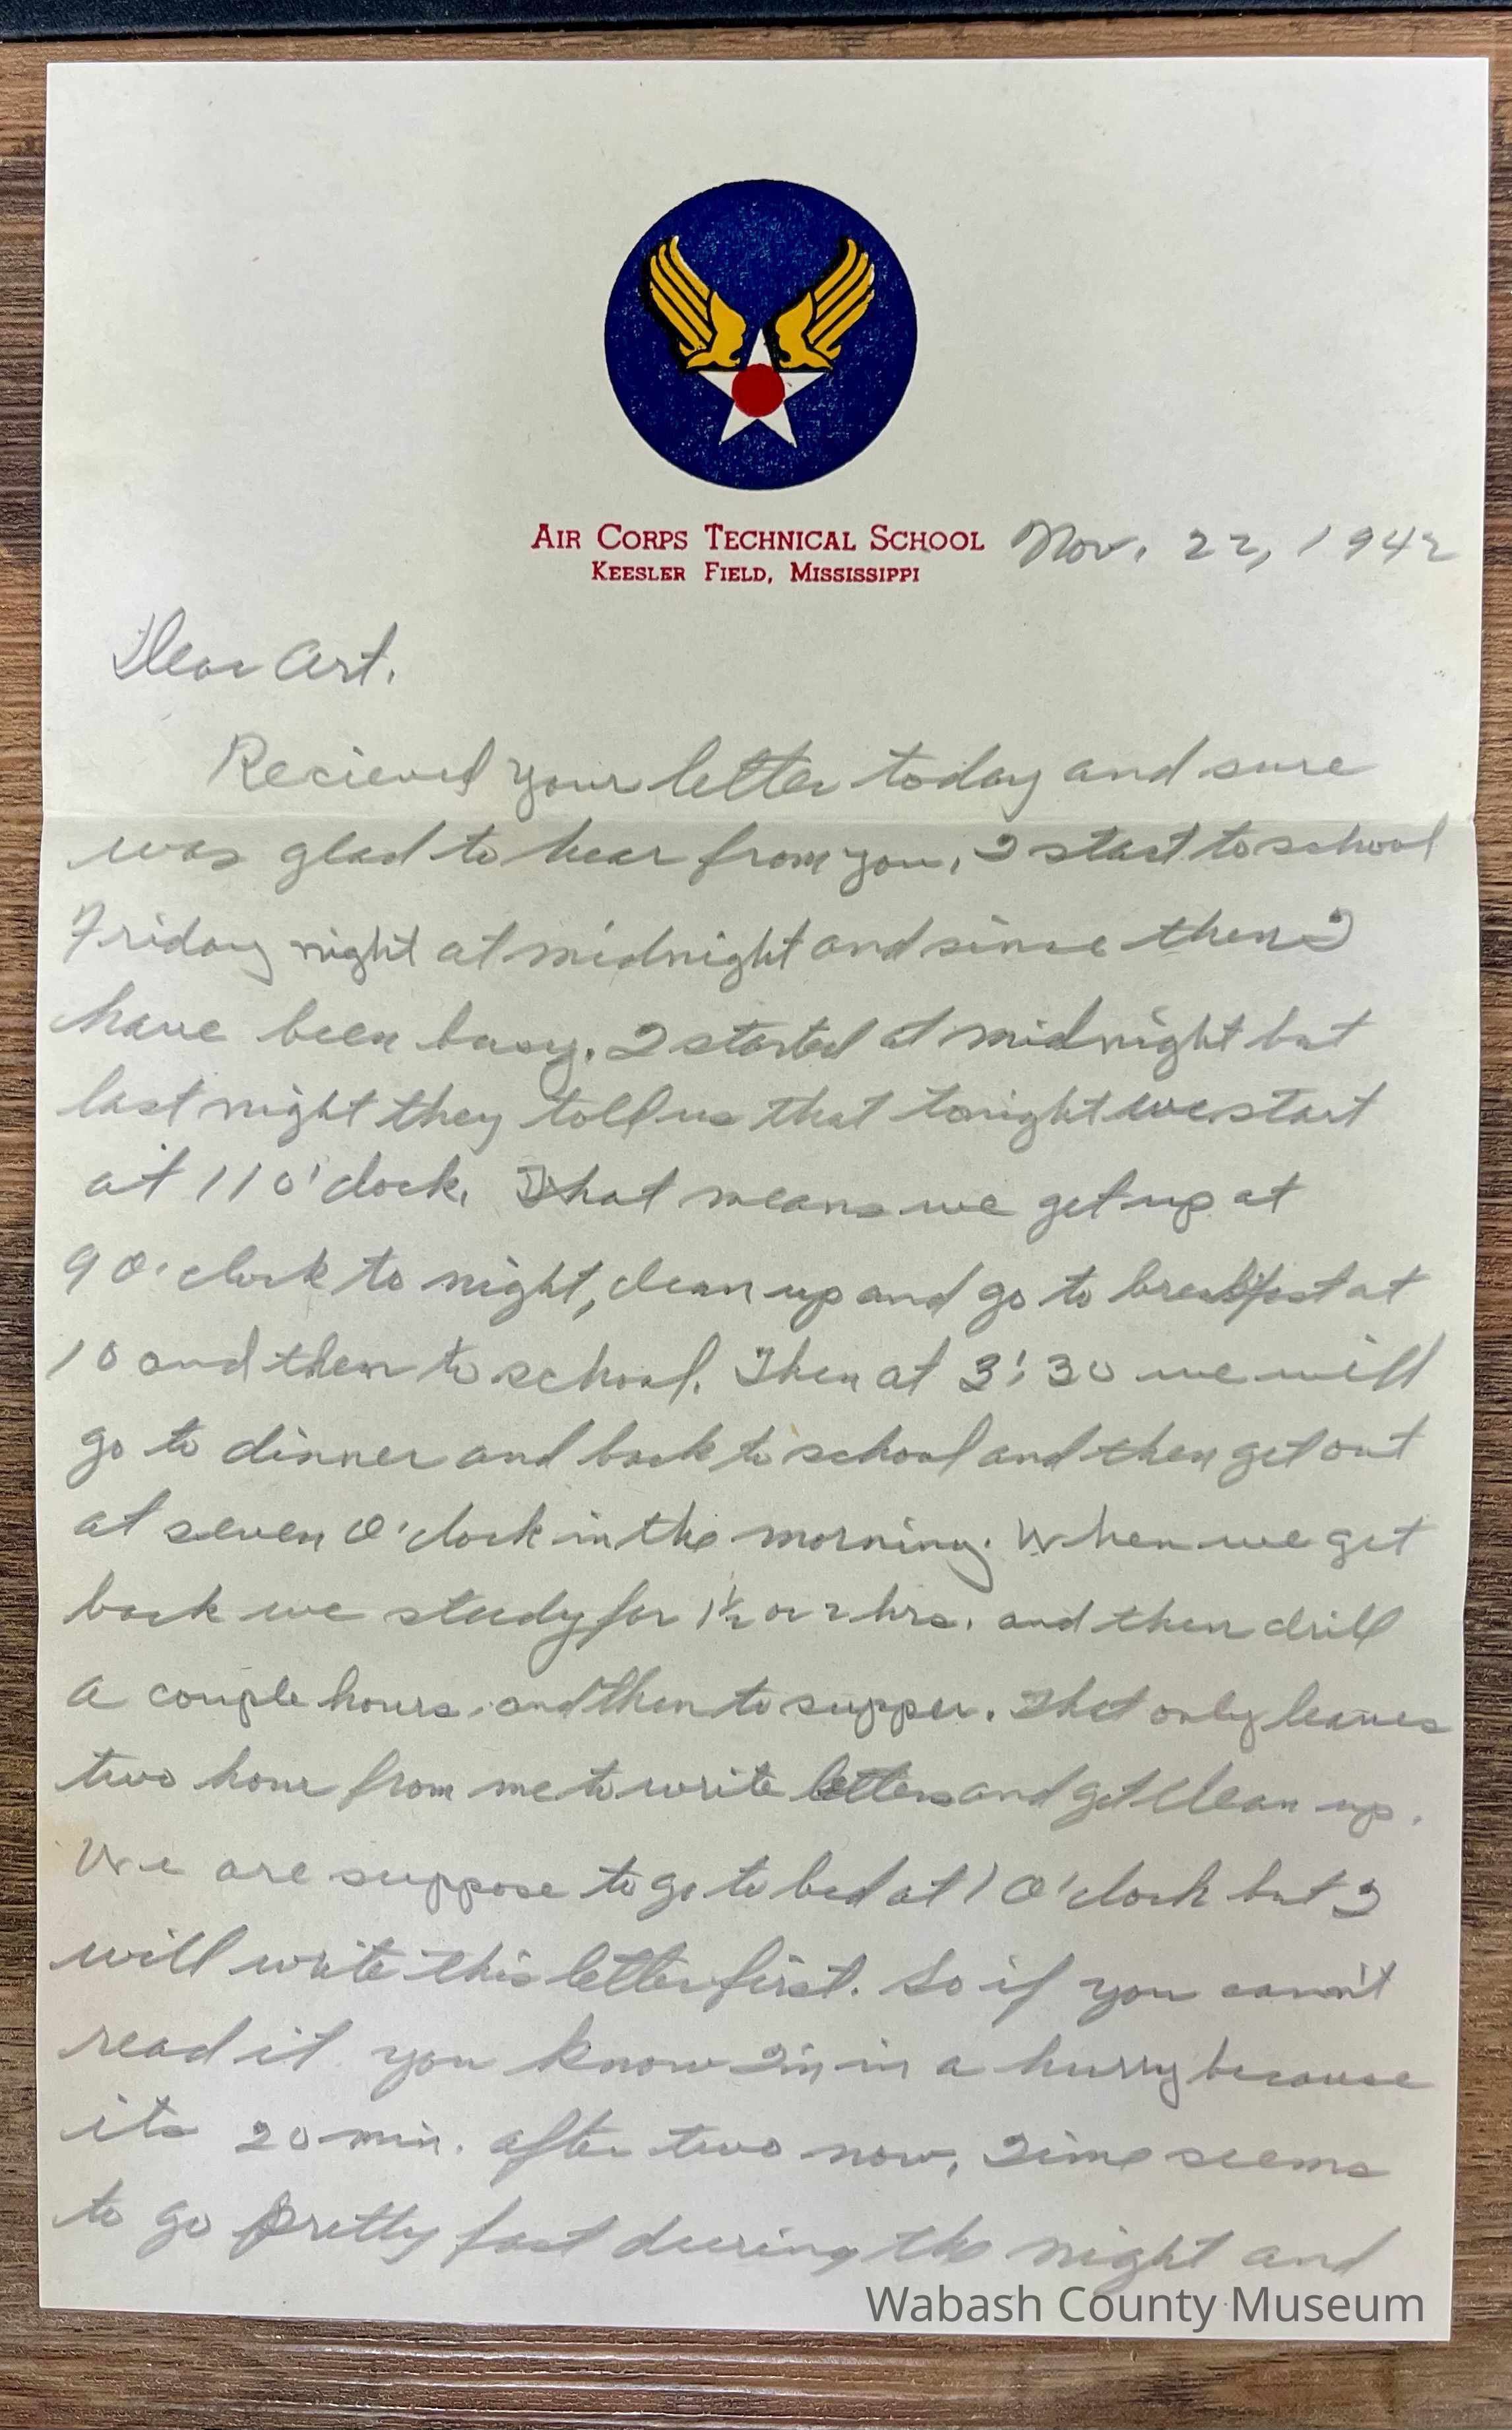 AIR CORPS TECHNICAL SCHOOL
KEESLER FIELD, MISSISSIPPI
Nov. 22, 1942
Dear Art.
Recieved your letter today and sure
was glad to hear from you. I start to school
Friday night at midnight and since then I
have been busy. I started at midnight but
last night they toll us that tonight we start
at 11 o'clock. That means we get up at
9 o'clock to night, clean up and go to breakfast at
10 and then to school. Then at 3:30 we will
go to dinner and back to school and then get out
at seven o'clock in the morning. When we get
back we study for 1½ or 2 hrs. and then drill
a couple hours and then to supper. That only leaves
two hour from me to write letters and get clean up.
We are suppose to go to bed at 1 O'clock but I
will write this letter first. So if you cann't
read it you know I'm in a hurry because
its 20 min. after two now. Time seems
to go pretty fast during the night and
Wabash County Museum